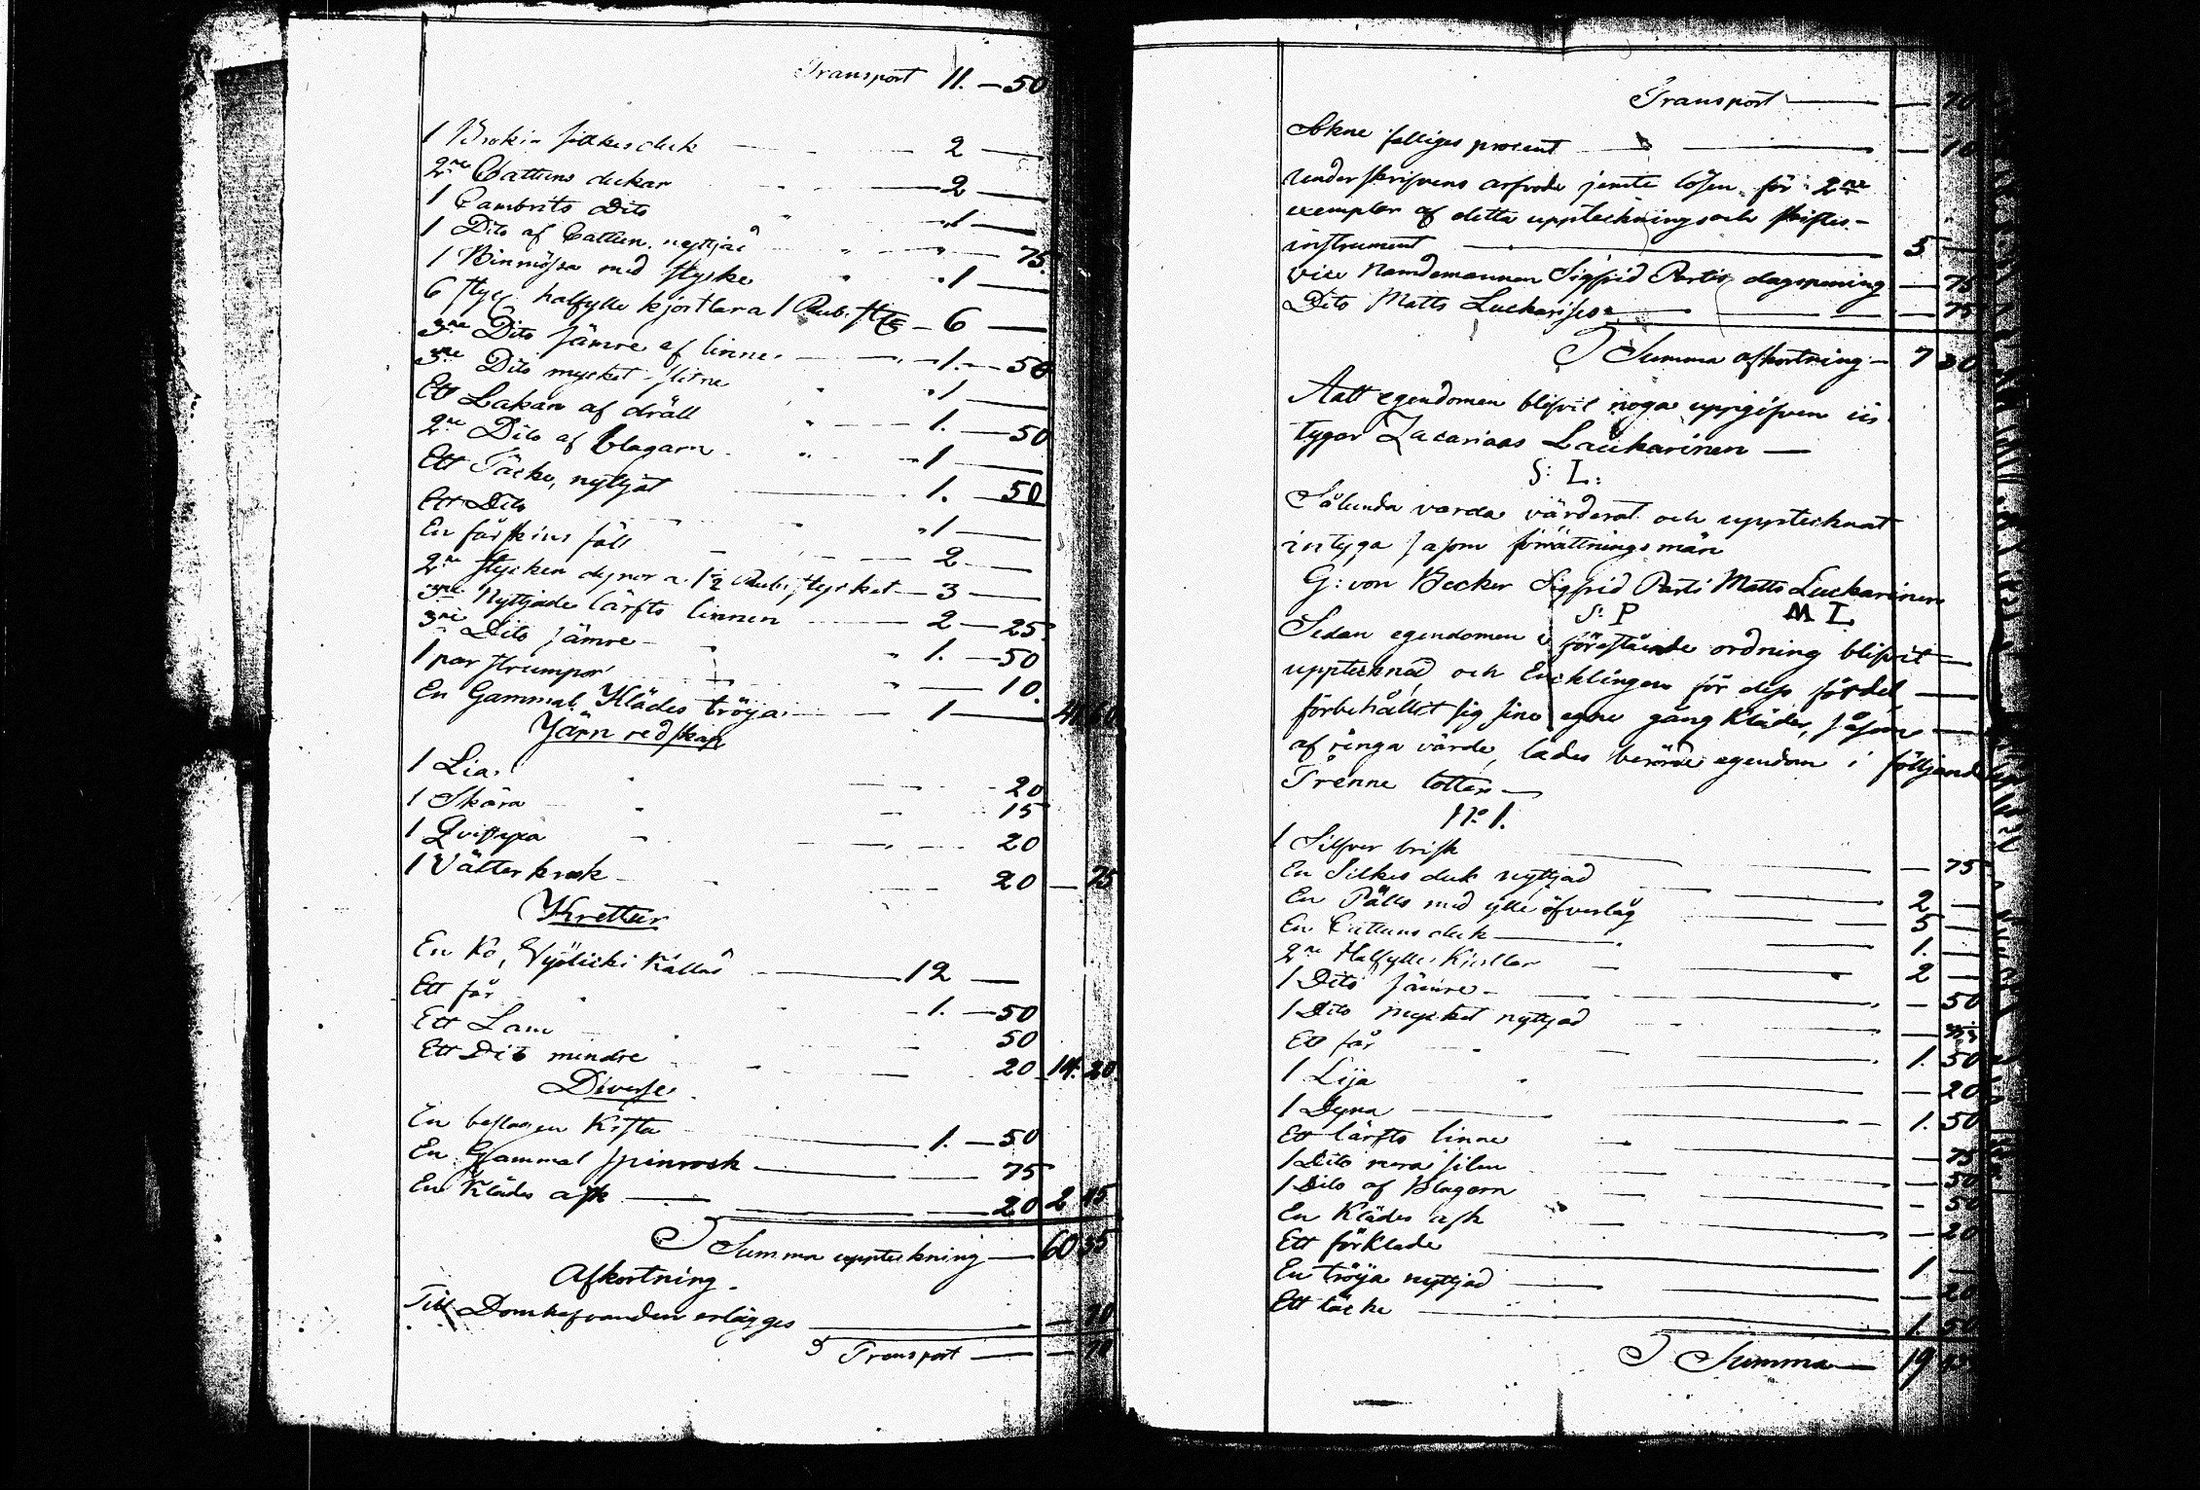 Transport 11. — 50
1 Brokig silkesduk — 2 —
2ne Cattuns dukar — 2 —
1 Cambrits Dito — 1 —
1 Dito af Cattun, nyttjad — 75.
1 Binmössa med stycke — 1 —
6 styck halfylle kjortlar a 1 Rub. st — 6 —
3ne Dito sämre af linne — 1. — 50
3ne Dito mycket slitne — 1 —
Ett Lakan af dräll — 1. — 50
2ne Dito af blagarn — 1 —
Ett Täcke, nyttjat — 1. — 50
Ett Dito — 1 —
En fårskins fäll — 2 —
2ne stycken dynor a 1½ Rub. stycket — 3 —
3ne Nyttjade lärfts linnen — 2 — 25.
3ne Dito sämre — 1. — 50
1 par strumpor — 10.
En Gammal Klädes tröja — 1 —
Järn redskap
1 Lia — 20
1 Skära — 15
1 Qvistyxa — 20
1 Vätter krok — 20 — 75
Krettur
En Ko, Kallad — 12 —
Ett får — 1. — 50
Ett Lam — 50
Ett Dito mindre — 20 14. 20
Diverse
En beslagen Kista — 1. — 50
En Gammal spinrock — 75
En Klädes ask — 20 2 45
Summa uppteckning — 60
Afkortning
Till Domhafvanden erlägges —
Transport —
Transport —
Sokne fattiges procent —
underskrifvens arfvode jemte lösen för 2ne
exemplar af detta uppteknings och skiftes-
instrument — 5 —
vice Nämdemannen Sigfrid Partis dagspening — 75
Dito Matts Luckarises — 75
Summa afkortning — 7 30
Att egendomen blifvit noga uppgifven in-
tygar Zacarias Laukarinen —
S: L:
Sålunda varda värderat och upptecknat
intyga såsom förrättningsmän
G: von Becker Sigfrid Parti Matts Luckarinen
S: P M L
Sedan egendomen i föreståinde ordning blifvit
upptecknad, och Encklingen för dess fördel
förbehållit sig sine egne gång Kläder, såsom
af ringa värde, lades berörde egendom i följande
Trenne lotter —
No 1.
1 Silfver brisk — 75
En Silkes duk nyttjad — 2 —
En Pälts med ylle öfverlag — 5 —
En Cattuns duk — 1. —
2ne Halfylle Kiortlar — 2 —
1 Dito sämre — 50
1 Dito mycket nyttjad —
Ett får — 1. 50
1 Lija — 20
1 Dyna — 1. 50
Ett lärfts linne — 75
1 Dito — 50
1 Dito af Blagarn — 50
En Klädes ask — 20
Ett förklade — 1 —
En tröija nyttjad — 20
Ett täcke — 1. 50
Summa — 19